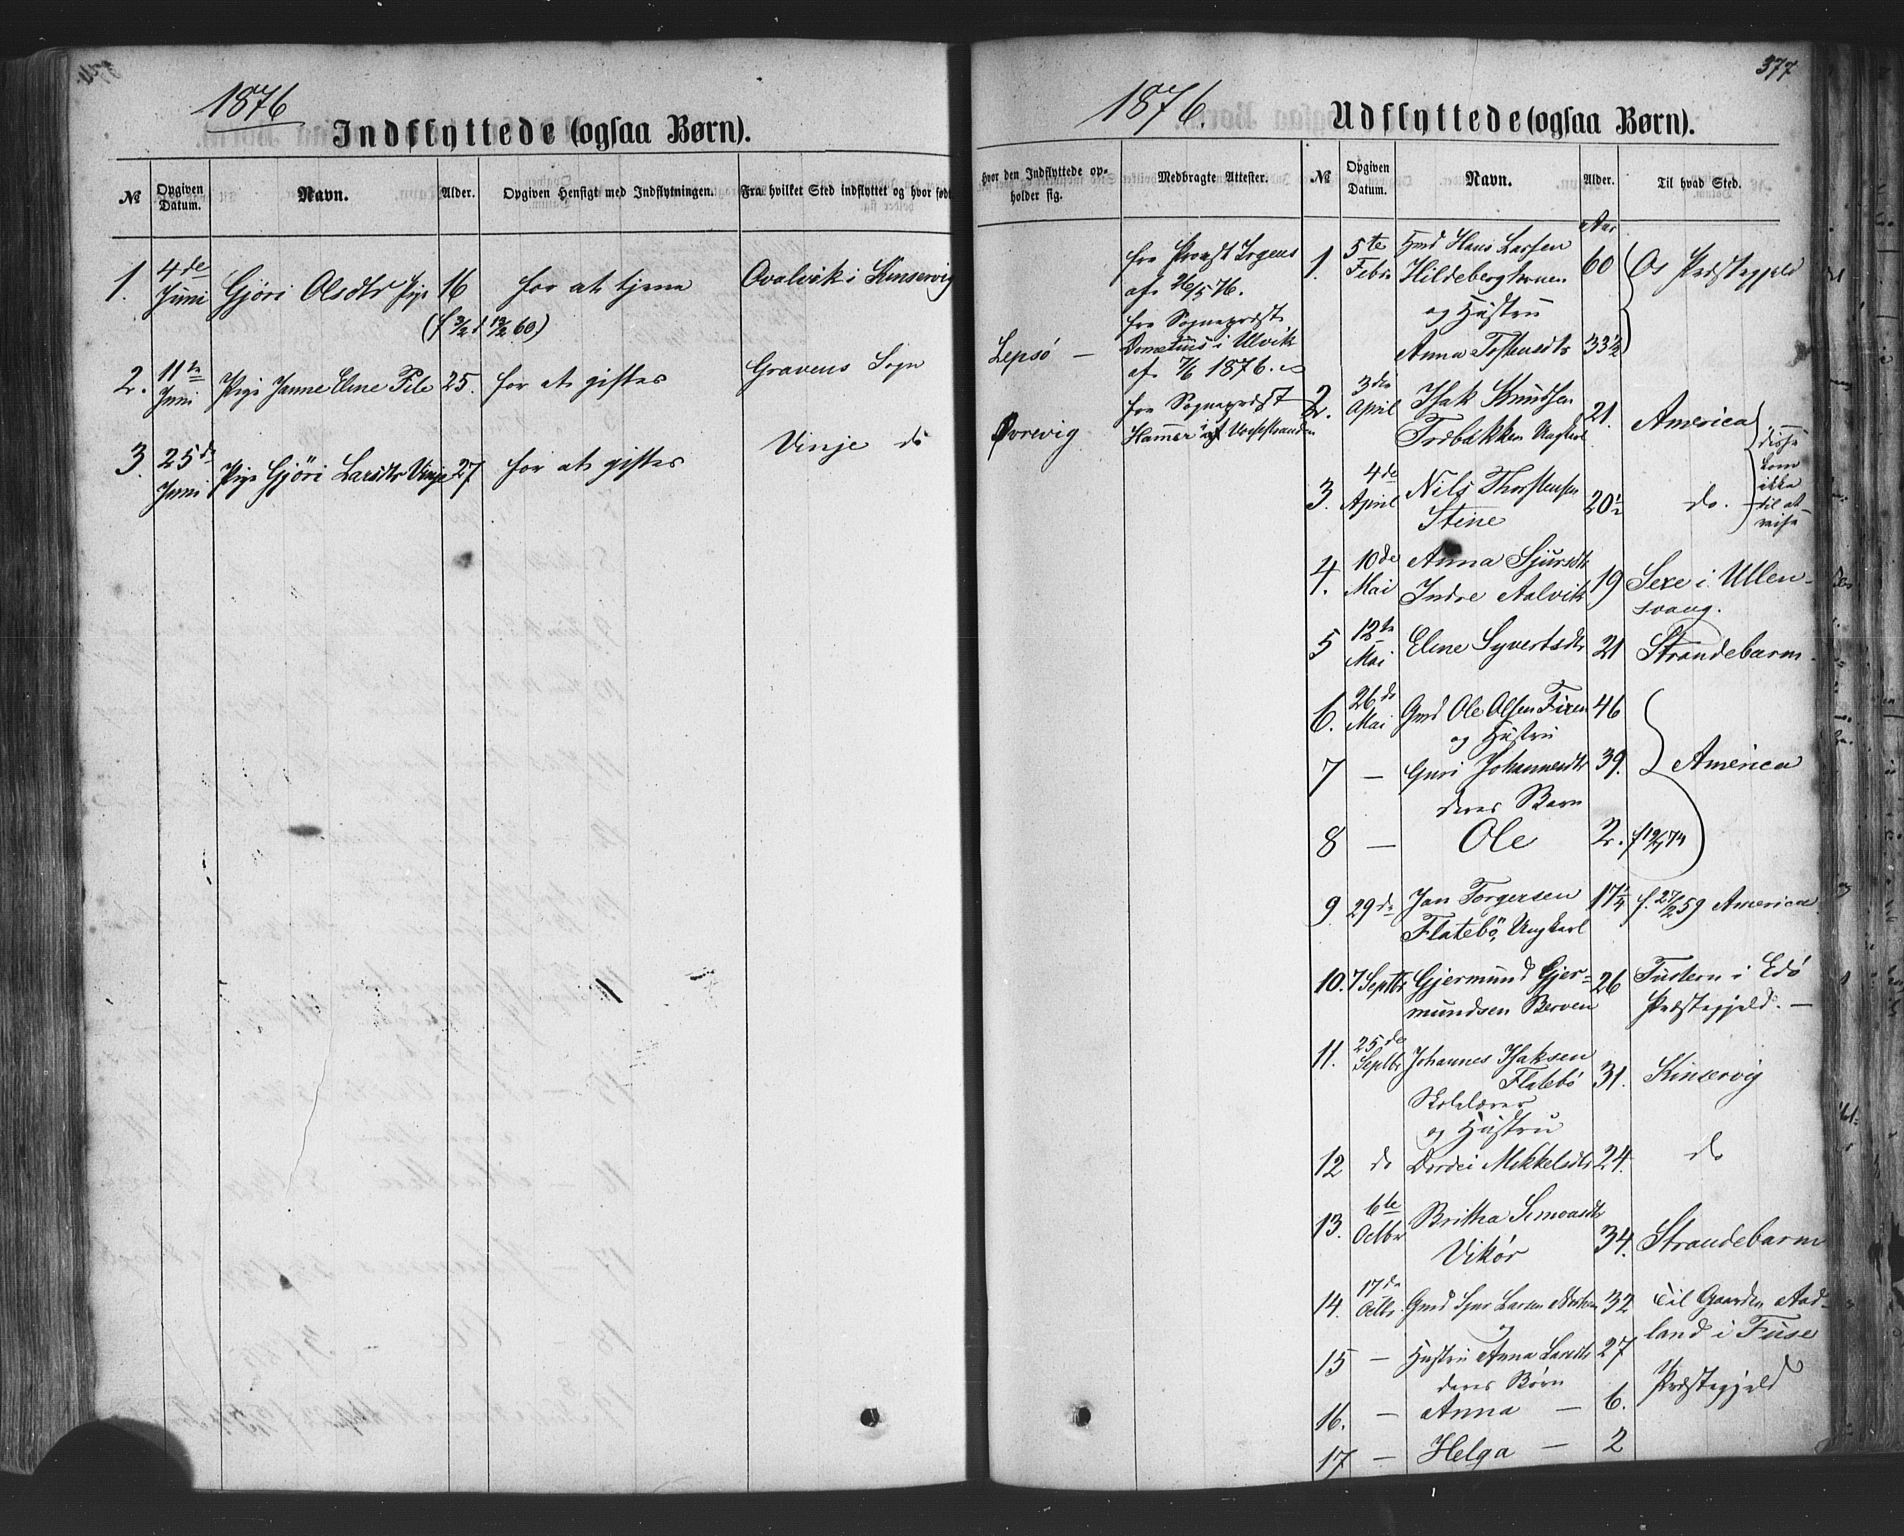 1876
Indflyttede (ogsaa Børn).
№
Opgiven Datum.
Navn.
Alder.
Opgiven Hensigt med Indflytningen.
Fra hvilket Sted indflyttet og hvor født
1. 4de Juni Gjøri Olsdtr Pige 16 for at tjene
2. 11te Juni Pige Janne Eline 25. for at giftes Gravens Sogn
3. 25de Juni Pige Gjöri Larsdtr Vinje 27 for at giftes Vinje do
377
1876.
Udflyttede (ogsaa Børn).
hvor den Indflyttede opholder sig.
Medbragte Attester.
№
Opgiven Datum.
Navn.
Alder.
Til hvad Sted.
Aar
fra Provst
af 26/5 76.
Lepsö — fra Sognepræst
i Ulvik
af 7/6 1876.
Övrevig fra Sognepræst
Hamer
1. 5te Hans Larsen
og Hustru 60 Os Præstegjeld
Anna 33½
2. 3die April Isak Knudsen
Ungkarl 21. America
disse
kom
ikke
til at
reise
3. 4de April Nils Thorstensen
Stine 20½ do.
4. 10de Mai Anna Sjursdtr
Indre Aalvik 19 Sexe i Ullen-
svang.
5 12te Mai Eline Syvertsdtr 21 Strandebarm
6. 26de Mai Gmd Ole Olsen Fixen 46
og Hustru
7 — Guri Johannesdtr 39. America
deres Barn
8 — Ole 2.
9 29de Jon Torgersen
Flatebö, Ungkarl 17¼ f. 27/2 59 America
10. 7 Septbr Gjermund Gjer-
mundsen Berven 26 Tustern i Edö
Præstegjeld. —
11. 25de Septbr Johannes Isaksen
Flatebö 31. Kinservig
Skolelærer
og Hustru
12 do Dordei Mikkelsdtr 24. do
13. 6te Octbr Britha Simonsdtr
Vikör 34. Strandebarm
14. 17de Octbr. Gmd Sjur Larsen 32 til Gaarden Aad-
og land i Fuse
15 — Hustru Anna Larsdtr 27 Præstegjeld
deres Börn
16. — Anna — 6.
17 — Helga — 2